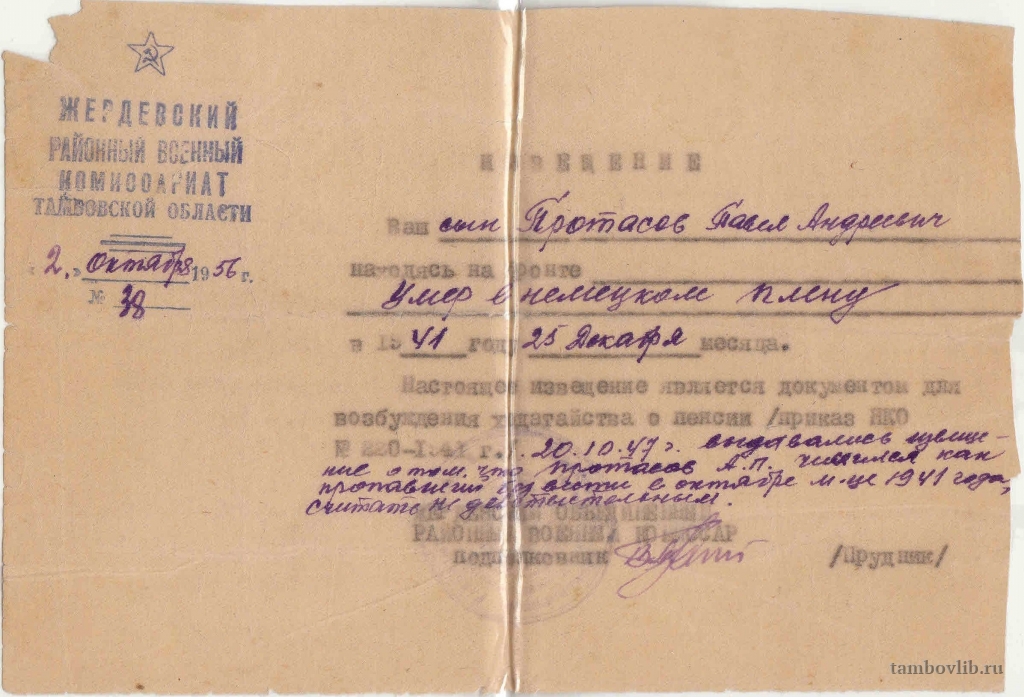 ЖЕРДЕВСКИЙ
РАЙОННЫЙ ВОЕННЫЙ
КОМИССАРИАТ
ТАМБОВСКОЙ ОБЛАСТИ
"2" октября 1956 г.
№ 38
ИЗВЕЩЕНИЕ
Ваш сын Протасов Павел Андреевич
находясь на фронте
Умер в немецком плену
в 1941 году 25 декабря месяца.
Настоящее извещение является документом для
возбуждения ходатайства о пенсии /приказ НКО
№ 220-1941 г./. 20.10.47 г. выдавалось извеще-
ние о том, что Протасов А.П. числился как
пропавший без вести в октябре м-це 1941 года,
считать не действительным.
ОБЪЕДИНЕННЫЙ
РАЙОННЫЙ ВОЕННЫЙ КОМИССАР
подполковник /Прудник/
tambovlib.ru